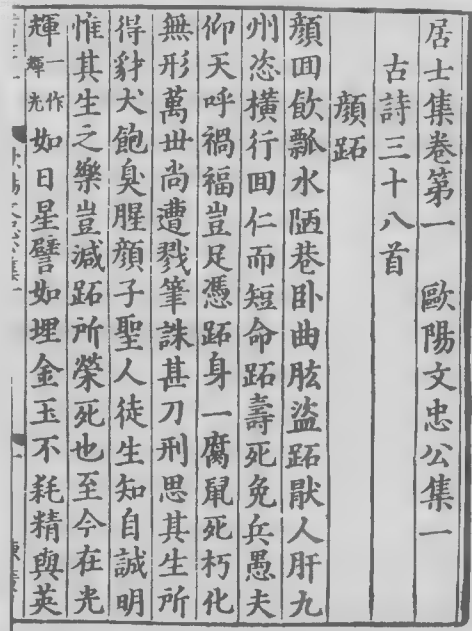 居士集卷第一　歐陽文忠公集一
古詩三十八首
顔跖
顔回飲瓢水陋巷卧曲肱盜跖猒人肝九
州恣橫行回仁而短命跖壽死免兵愚夫
仰天呼禍福豈足憑跖身一腐鼠死朽化
無形萬世尚遭戮筆誅甚刀刑思其生所
得豺犬飽臭腥顔子聖人徒生知自誠明
惟其生之樂豈減跖所榮死也至今在光
輝一作輝光如日星譬如埋金玉不耗精與英